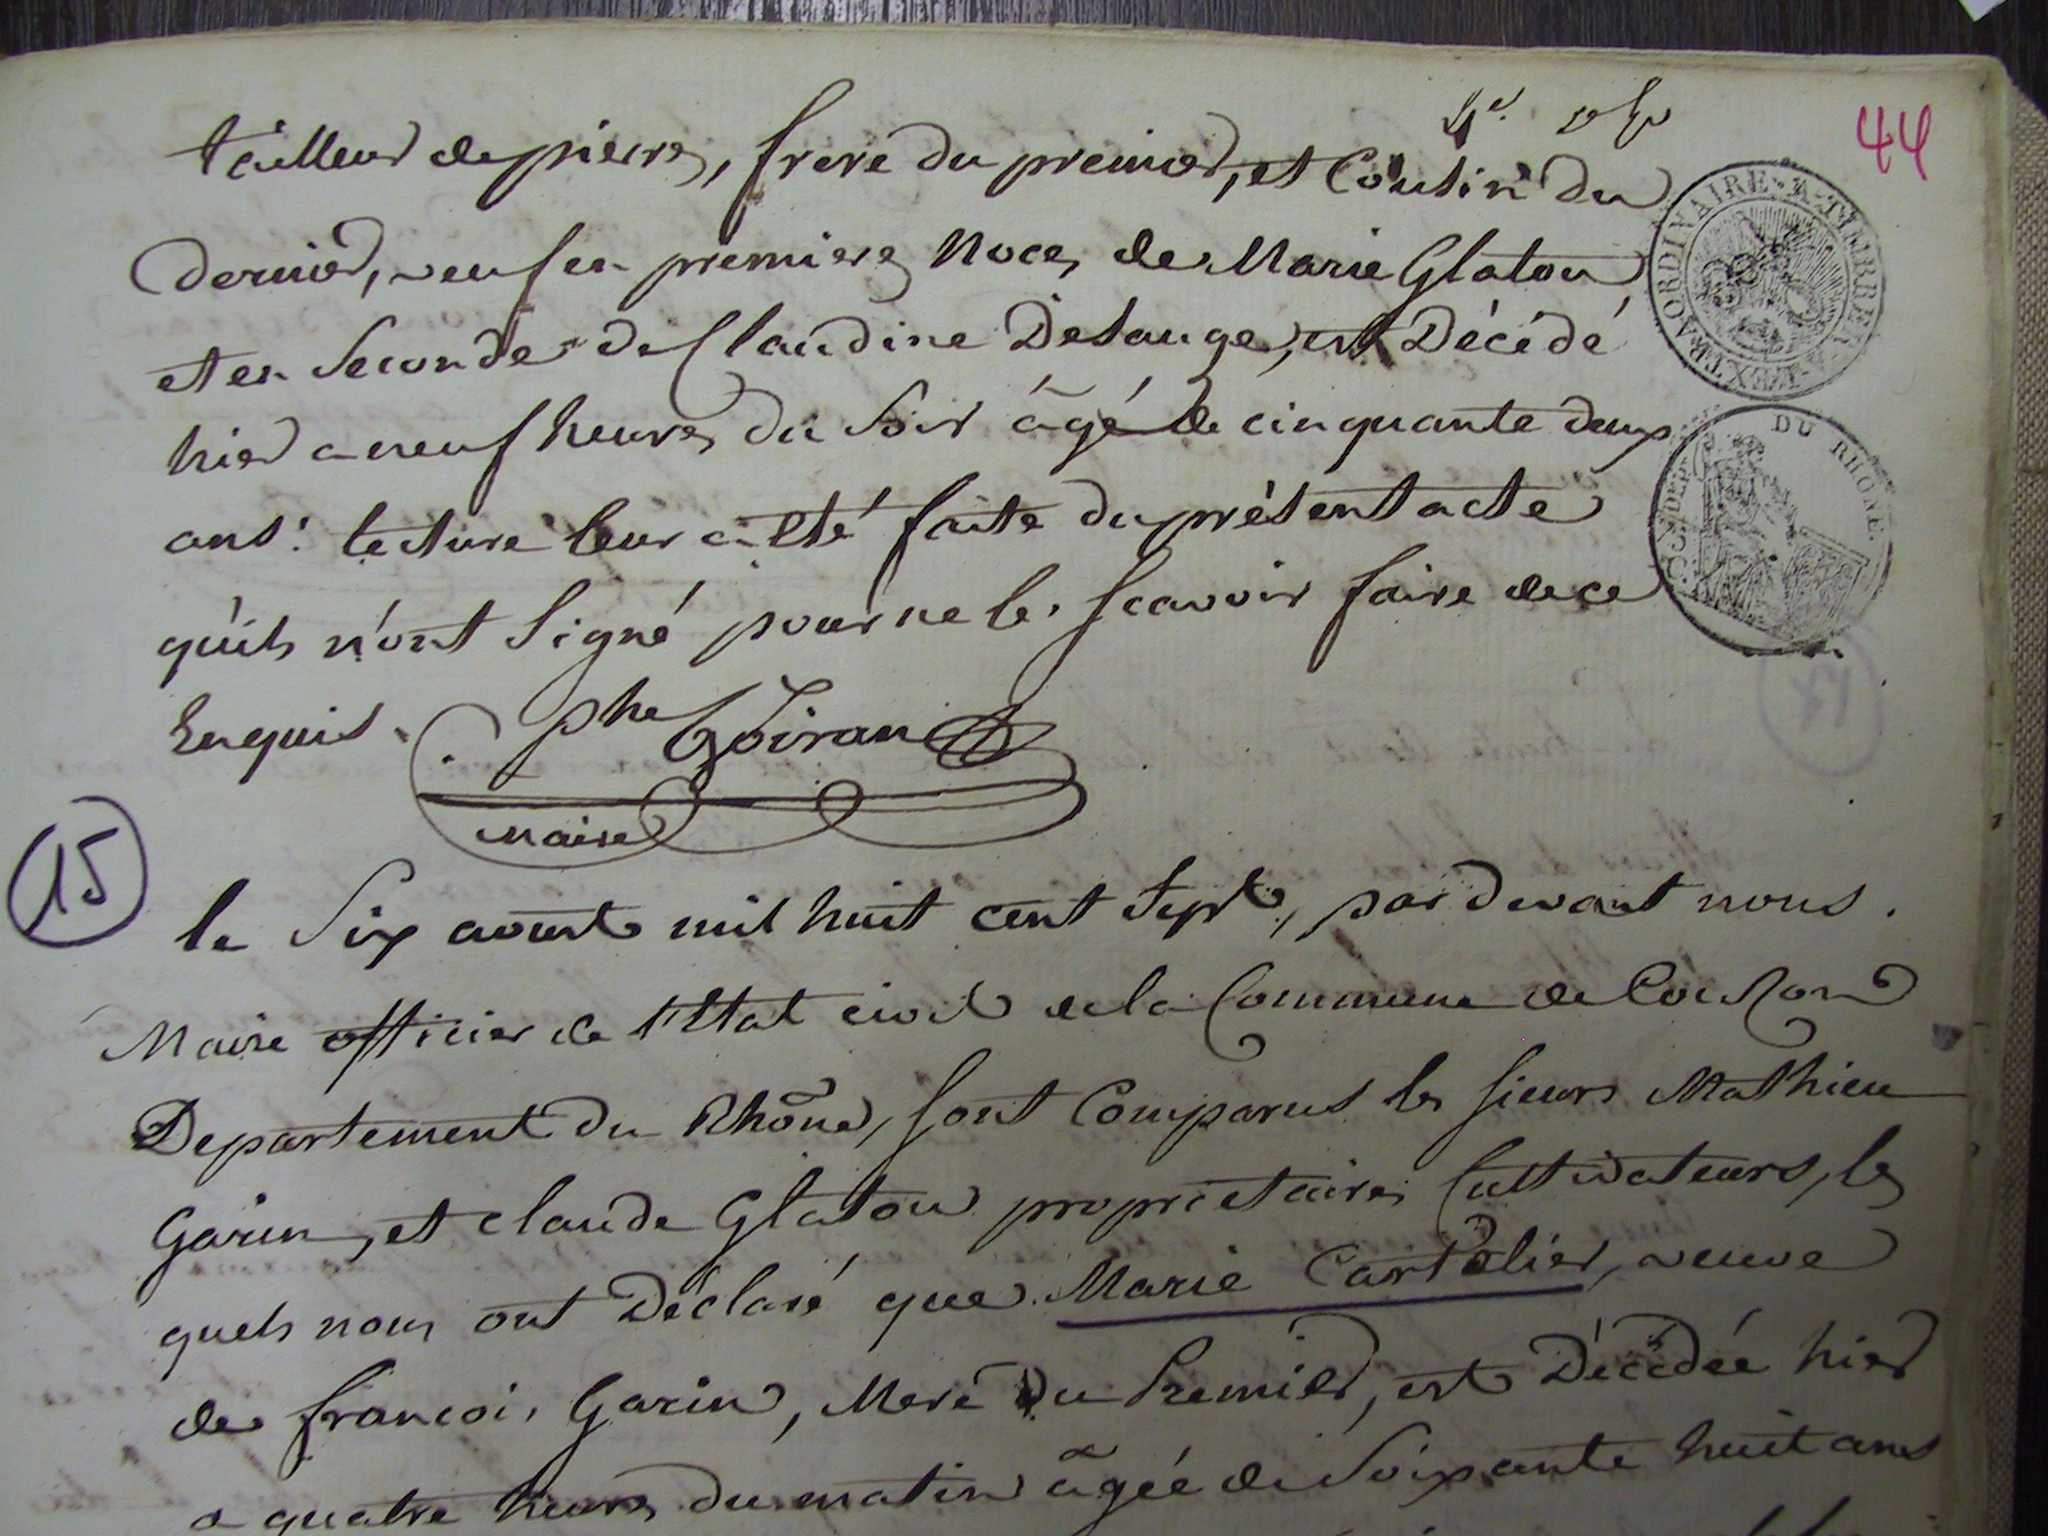 44
tailleur de pierres, frere du premier, et Cousin du
dernier, veuf en premieres Noces de Marie Glatou
et en Secondes de Claudine Desauge, est Décédé
hier a neuf heures du Soir âgé de cinquante deux
ans: lecture leur a été faite du présent acte
qu'ils n'ont Signé pour ne le Scavoir faire de ce
Enquis.
phe Goiran
Maire
EXTRAORDINAIRE
DEPT DU RHONE.
15
le Six aoust mil huit cent Sept, pardevant nous
Maire officier de l'Etat civil de la Commune de Couzon
Departement du Rhône, Sont Comparus les Sieurs Mathieu
Garin, et Claude Glatou proprietaires Cultivateurs, les
quels nous ont Déclaré que Marie Cartelier, veuve
de François Garin, Mere du Premier, est Décédée hier
a quatre heures du matin âgée de Soixante huit ans